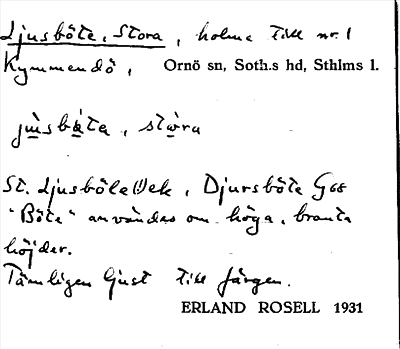 Ljusböte, Stora, holme till nr. 1
Kymmendö, Ornö sn, Soth.s hd, Sthlms l.
jùsbö̀ta, stòra
St. Ljusböte Oek, Djursböte G68
"Böte" användes om höga, branta
höjder.
Tämligen ljust till färgen.
ERLAND ROSELL 1931